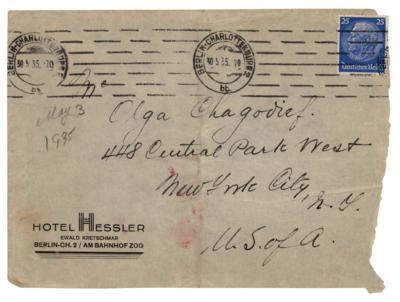 BERLIN-CHARLOTTENBURG 2
30.5.35. 20
bb
BERLIN-CHARLOTTENBURG 2
30.5.35. 20
bb
25 25
Deutsches Reich
May 3
1935
Olga Chagodief.
448 Central Park West
New York City,
N.Y.
U.S. of A.
HOTEL HESSLER
EWALD KRETSCHMAR
BERLIN-CH. 2 / AM BAHNHOF ZOO